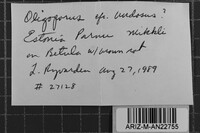 Oligoporus cf. undosus?
Estonia Parnu Nikkli
on Betula w/ brown rot
L. Ryvarden Aug 27, 1989
# 27128
ARIZ-M-AN22755